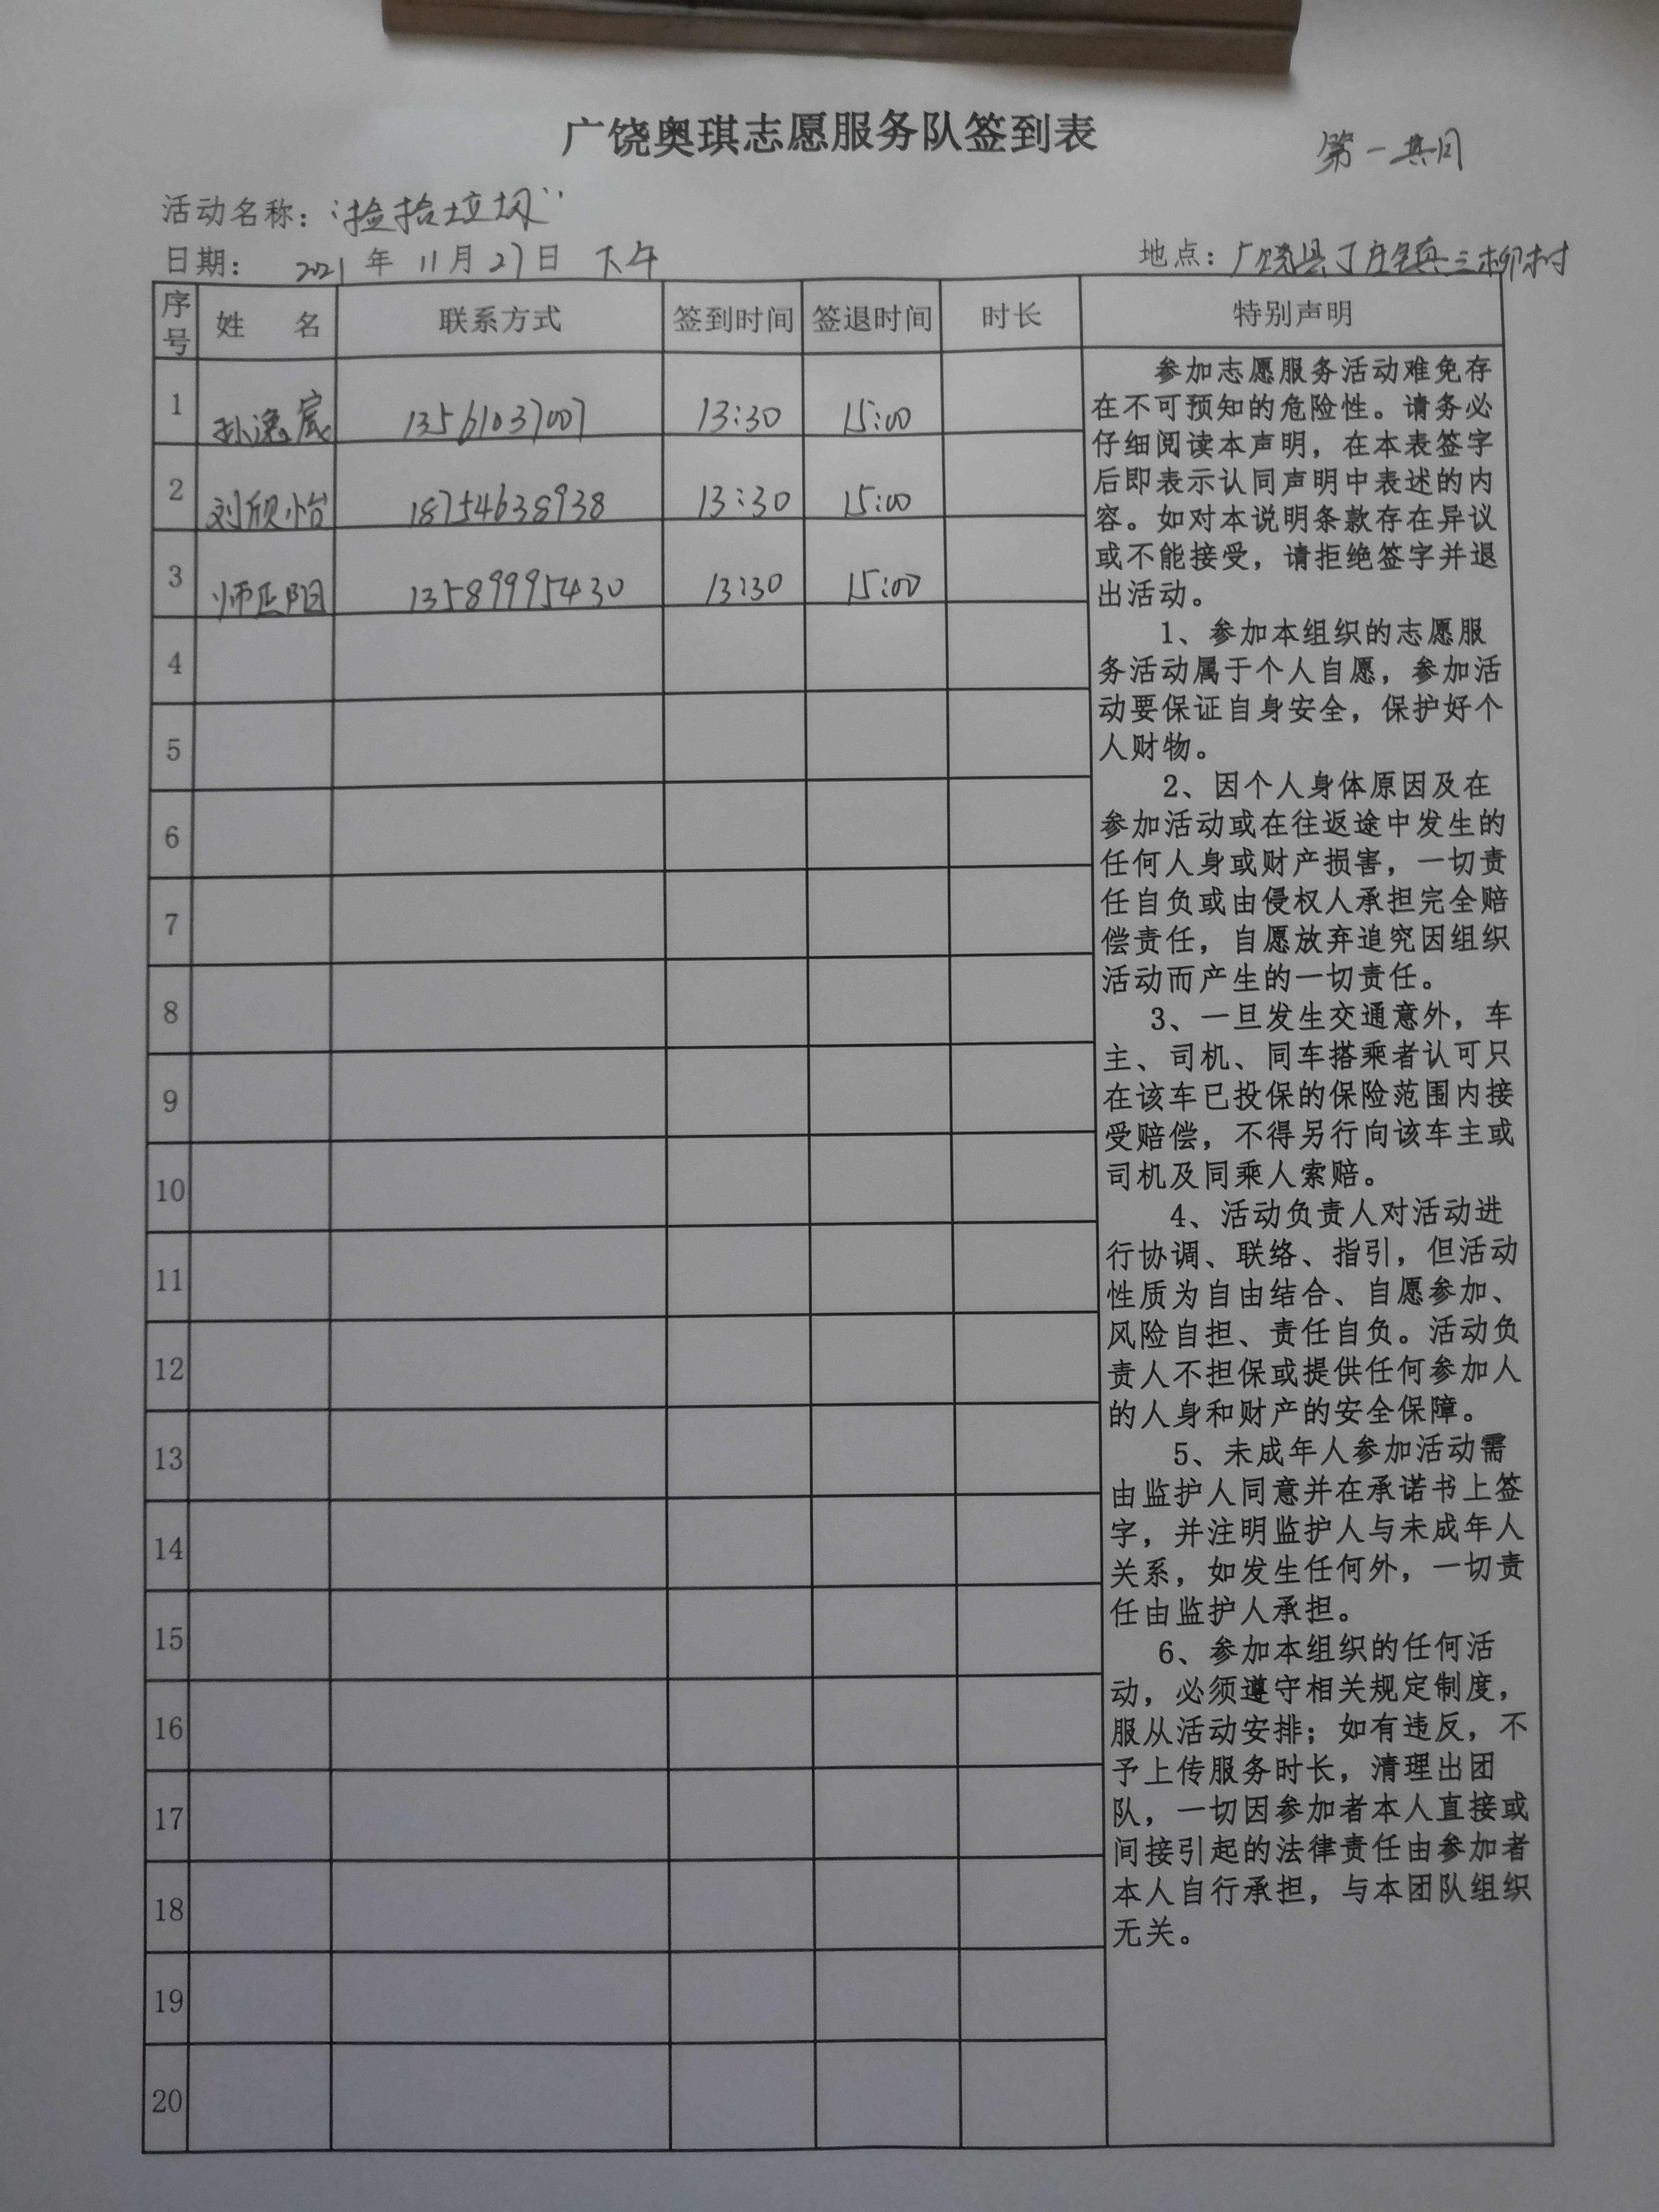 广饶奥琪志愿服务队签到表
第一期
活动名称：“捡拾垃圾”
日期： 2021 年 11月27日 下午
地点：广饶县丁庄镇三柳村
序号 姓 名 联系方式 签到时间 签退时间 时长 特别声明
1 孙逸宸 13561037007 13:30 15:00
2 刘欣怡 18754638938 13:30 15:00
3 师正阳 13589995430 13:30 15:00
4
5
6
7
8
9
10
11
12
13
14
15
16
17
18
19
20
参加志愿服务活动难免存
在不可预知的危险性。请务必
仔细阅读本声明，在本表签字
后即表示认同声明中表述的内
容。如对本说明条款存在异议
或不能接受，请拒绝签字并退
出活动。
1、参加本组织的志愿服
务活动属于个人自愿，参加活
动要保证自身安全，保护好个
人财物。
2、因个人身体原因及在
参加活动或在往返途中发生的
任何人身或财产损害，一切责
任自负或由侵权人承担完全赔
偿责任，自愿放弃追究因组织
活动而产生的一切责任。
3、一旦发生交通意外，车
主、司机、同车搭乘者认可只
在该车已投保的保险范围内接
受赔偿，不得另行向该车主或
司机及同乘人索赔。
4、活动负责人对活动进
行协调、联络、指引，但活动
性质为自由结合、自愿参加、
风险自担、责任自负。活动负
责人不担保或提供任何参加人
的人身和财产的安全保障。
5、未成年人参加活动需
由监护人同意并在承诺书上签
字，并注明监护人与未成年人
关系，如发生任何外，一切责
任由监护人承担。
6、参加本组织的任何活
动，必须遵守相关规定制度，
服从活动安排；如有违反，不
予上传服务时长，清理出团
队，一切因参加者本人直接或
间接引起的法律责任由参加者
本人自行承担，与本团队组织
无关。